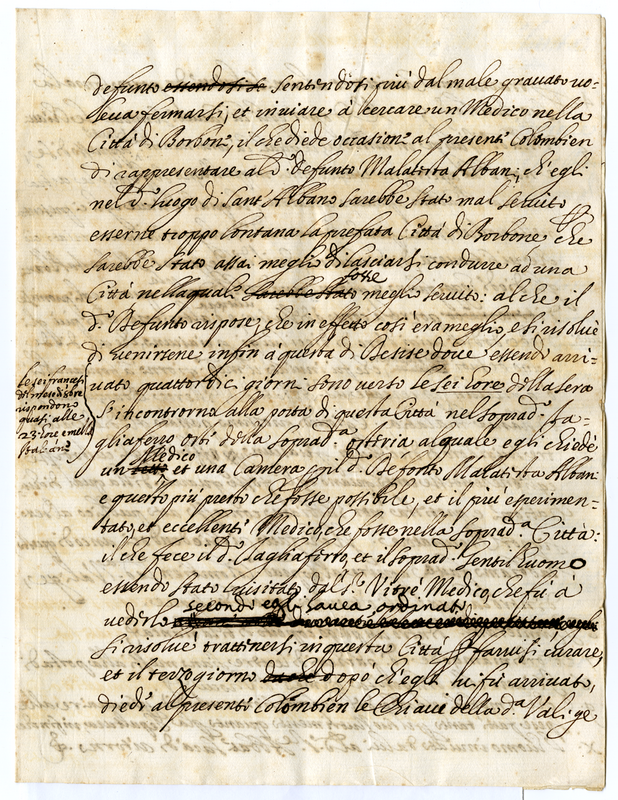 defunto essendosi se sentendosi più dal male gravato vo=
leva fermarsi, et inviare à cercare un Medico nella
Città di Borbone, il che diede occasione al presente Colombien
di rappresentare al d.º defunto Malatesta Albani, ch'egli
nel d.º luogo di Sant'Albano sarebbe stato mal servito
esserne troppo lontana la prefata Città di Borbone che
sarebbe stato assai meglio di lasciarsi condurre ad una
Città nella quale sarebbe stato fosse meglio servito: al che il
d.º Defunto rispose, che in effetto così era meglio, e si risolue
di venirsene infin a questa di Besise dove essendo arri=
vato quattordici giorni sono verso le sei hore della sera
s'incontrorno alla porta di questa Città nel soprad.º Ta=
gliaferro oste della soprad.ª ostaria al quale egli chiede
un letto Medico et una Camera, pil d.º Defonto Malatesta Albani
e questo più presto che fosse possibile, et il più esperimen=
tato, et eccellente Medico, che fosse nella soprad.ª Città:
il che fece il d.º Tagliaferro, et il soprad.º Gentilhuomo
essendo stato visitato dal s.r Vioré Medico, che fù à
vederlo secondo egli haveva ordinato
si risolué trattenersi in questa Città p farsi curare,
et il terzo giorno dopò ch'egli vi fù arrivato,
diede al presente Colombien le Chiavi della d.ª Valige
le sei francesi
rispondono
quasi alle
23 hore e mezza
Italiane